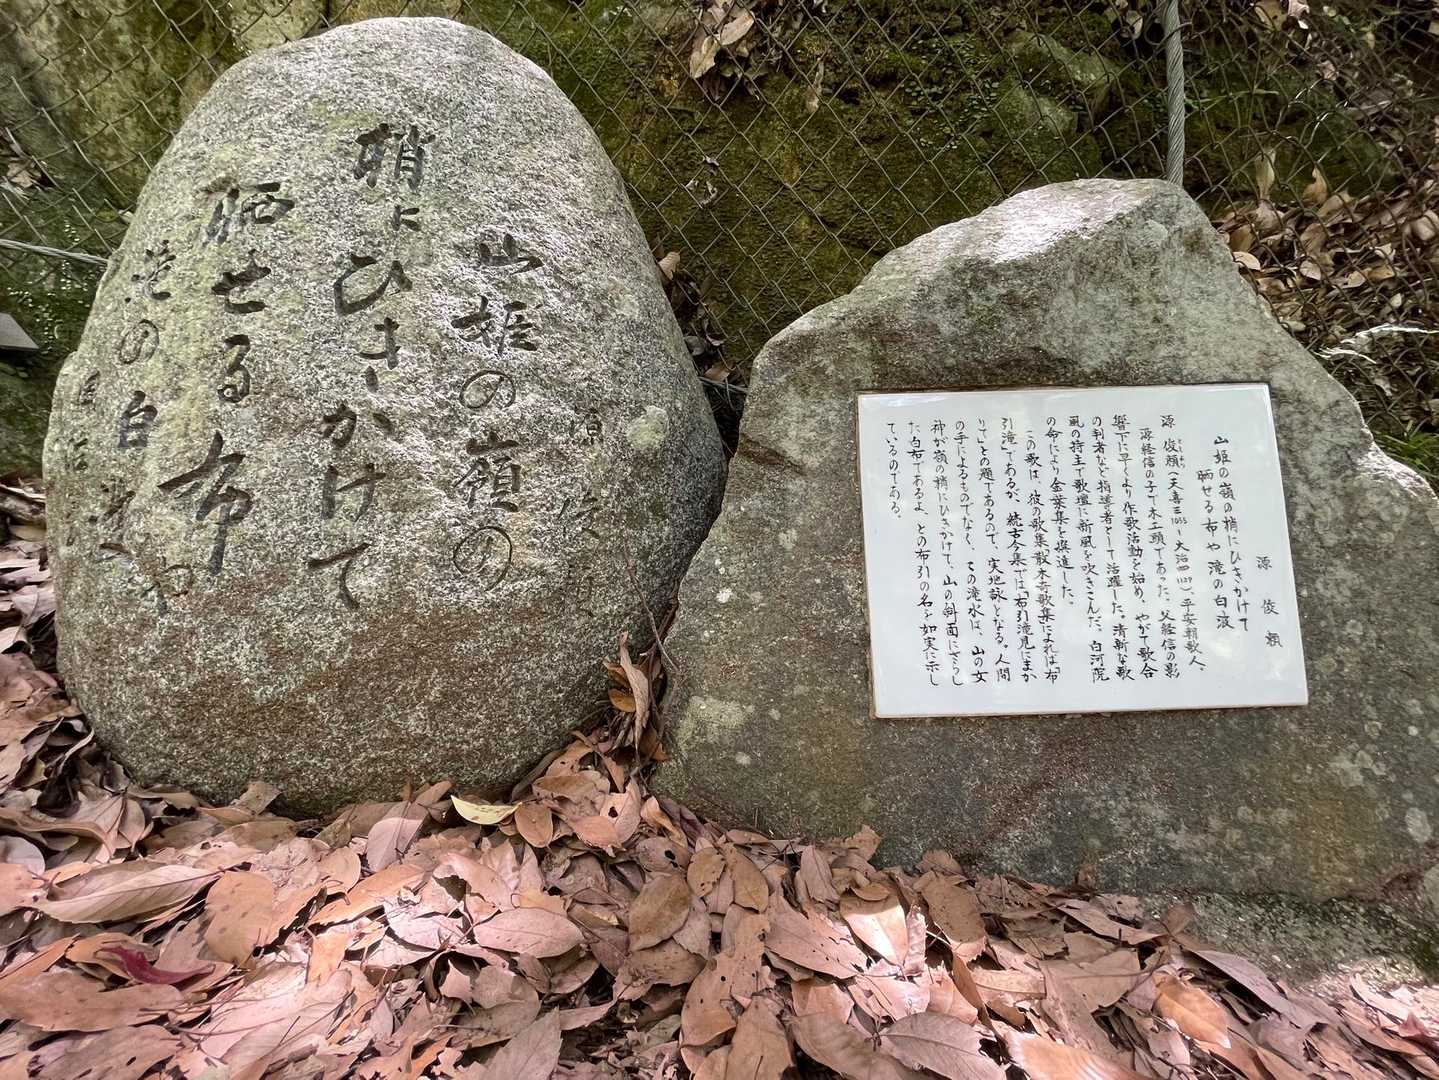 源俊頼
山姫の嶺の
梢にひきかけて
晒せる布や
滝の白波
源俊頼
山姫の嶺の梢にひきかけて
晒せる布や滝の白波
源俊頼(天喜三1055~大治四1129)、平安朝歌人、
源経信の子で木工頭であった。父経信の影
響下に早くより作歌活動を始め、やがて歌合
の判者など指導者として活躍した。清新な歌
風の持主で歌壇に新風を吹きこんだ。白河院
の命により金葉集を撰進した。
この歌は、彼の歌集散木奇歌集によれば「布
引滝」であるが、続古今集では「布引滝見にまか
りて」との題であるので、実地詠となる。人間
の手によるものでなく、この滝水は、山の女
神が嶺の梢にひきかけて、山の斜面にさらし
た白布であるよ、との布引の名を如実に示し
ているのである。